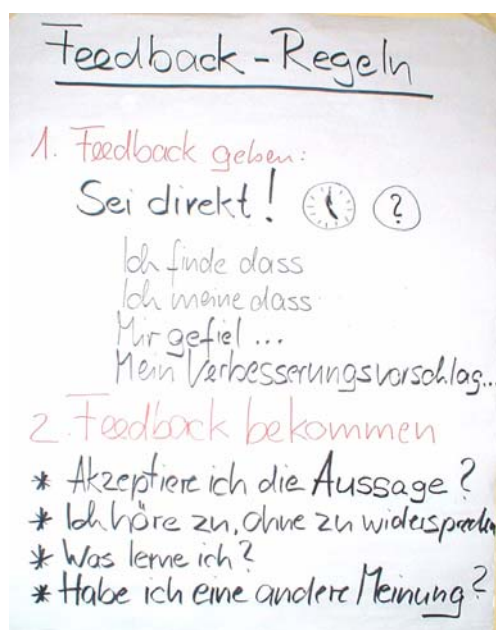 Feedback-Regeln
1. Feedback geben:
Sei direkt! ?
Ich finde dass
Ich meine dass
Mir gefiel ...
Mein Verbesserungsvorschlag...
2. Feedback bekommen
* Akzeptiere ich die Aussage?
* Ich höre zu, ohne zu widersprechen
* Was lerne ich?
* Habe ich eine andere Meinung?